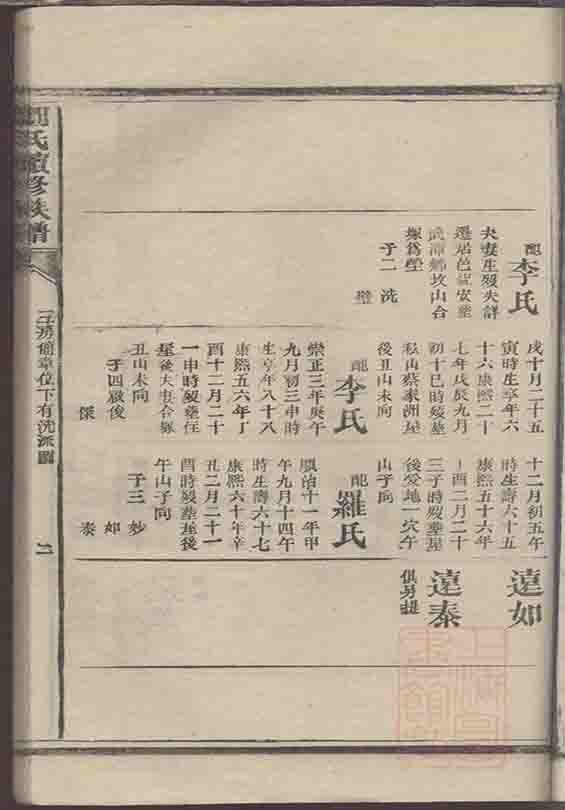 配李氏
夫妻生殁失詳
遷居邑龍安葬
武潭鄉坟山合
塚爲塋
子二 洗
璧
戌十月二十五
寅時生享年六
十六康熙二十
七年戊辰九月
初十巳時殁葬
私山蔡家洲屋
後丑山未向
配李氏
崇正三年庚午
九月初三申時
生享年八十八
康熙五六年丁
酉十二月二十
一申時殁葬住
屋後夫妻合塚
丑山未向
子四 俊
傑
十二月初五午
時生壽六十五
康熙五十六年
丁酉二月二十
三子時殁葬屋
後癸地一穴午
山子向
配羅氏
順治十一年甲
午九月十四午
時生壽六十七
康熙六十年辛
丑二月二十一
酉時殁葬屋後
午山子向
子三 妙
如
泰
遠如
遠泰
俱另提
氏續修族譜
三房簡章位下有洗派圖
上海圖書館藏